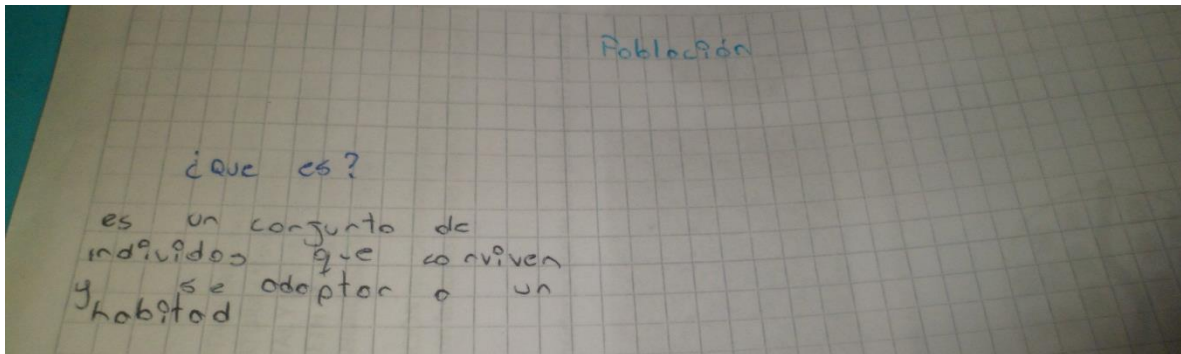 Población
¿Que es?
es un conjunto de
individos que conviven
y se adaptar a un
habitad